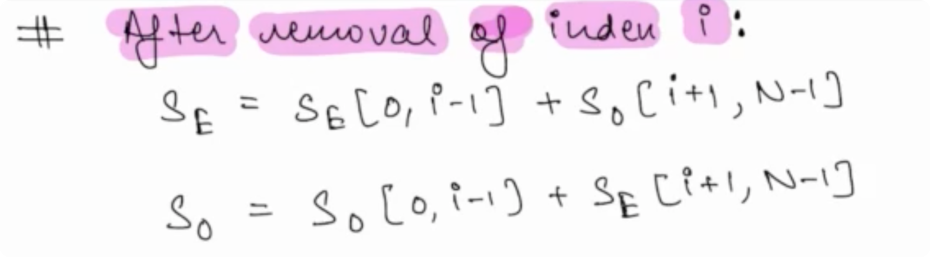 # After removal of index i:
S_E = S_E [0, i-1] + S_O [i+1, N-1]
S_O = S_O [0, i-1] + S_E [i+1, N-1]